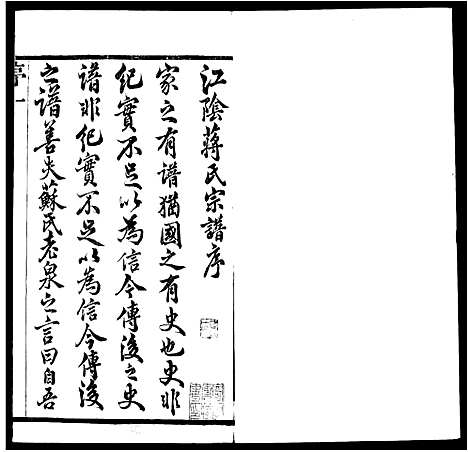 江陰蔣氏宗譜序
家之有譜猶國之有史也史非
紀實不足以為信今傳後之史
譜非紀實不足以為信今傳後
之譜善夫蘇氏老泉之言曰自吾
序一